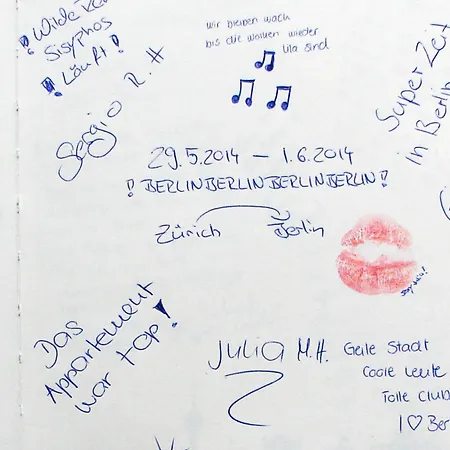 ! Wilde
Sisyphos
! Läuft !
R. H
Sergio
wir bleiben wach
bis die wolken wieder
lila sind
Super Zeit
in Berlin
29.5.2014 – 1.6.2014
! BERLINBERLINBERLINBERLIN !
Zürich Berlin
Das
Appartement
war top!
Julia M.H.
Geile Stadt
Coole Leute
Tolle Club
I ♡ Ber